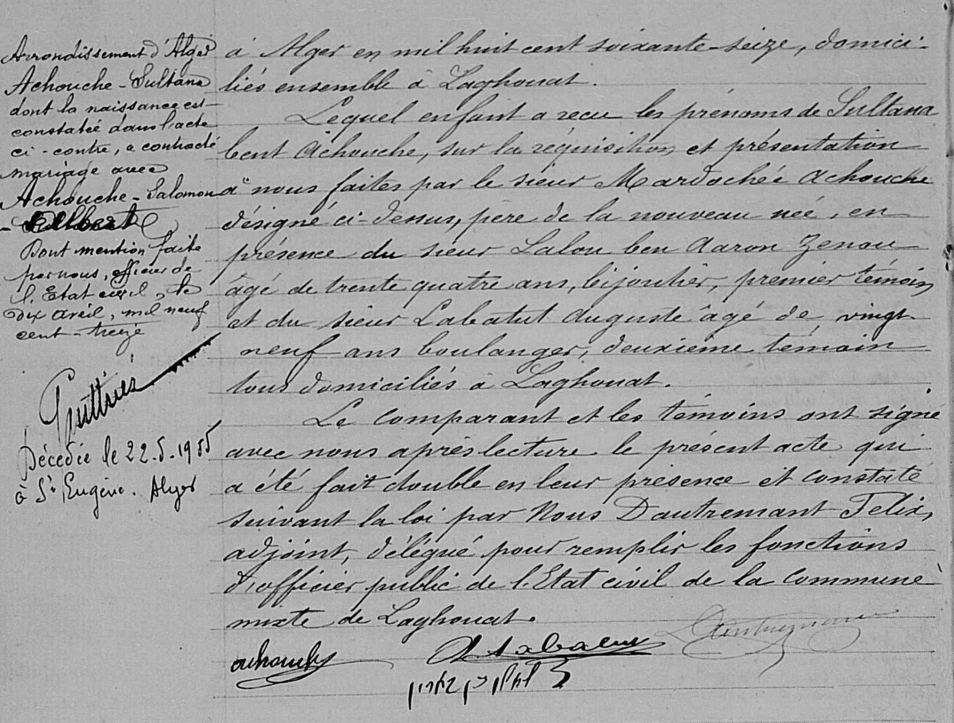 Arrondissement d'Alger
Achouche-Sultana
dont la naissance est
constatée dans l'acte
ci-contre, a contracté
mariage avec
Achouche-Salomon
-Albert
Dont mention faite
par nous, officier de
l'Etat civil, le
dix avril, mil neuf
cent-treize
Décédée le 22.5.1955
à St Eugène. Alger
à Alger en mil huit cent soixante-seize, domici-
liés ensemble à Laghouat.
Lequel enfant a recu les prénoms de Sultana
bent Achouche, sur la réquisition et présentation
à nous faites par le sieur Mardochée Achouche
désigné ci-dessus, père de la nouveau née, en
présence du sieur Lalou ben Aaron Zenou
âgé de trente quatre ans, bijoutier, premier témoin
et du sieur Labatut Auguste âgé de vingt-
neuf ans boulanger, deuxième témoin
tous domiciliés à Laghouat.
Le comparant et les témoins ont signé
avec nous après lecture le présent acte qui
a été fait double en leur présence et constaté
suivant la loi par Nous Dautremant Felix,
adjoint, délégué pour remplir les fonctions
d'officier public de l'Etat civil de la commune
mixte de Laghouat.
achouche